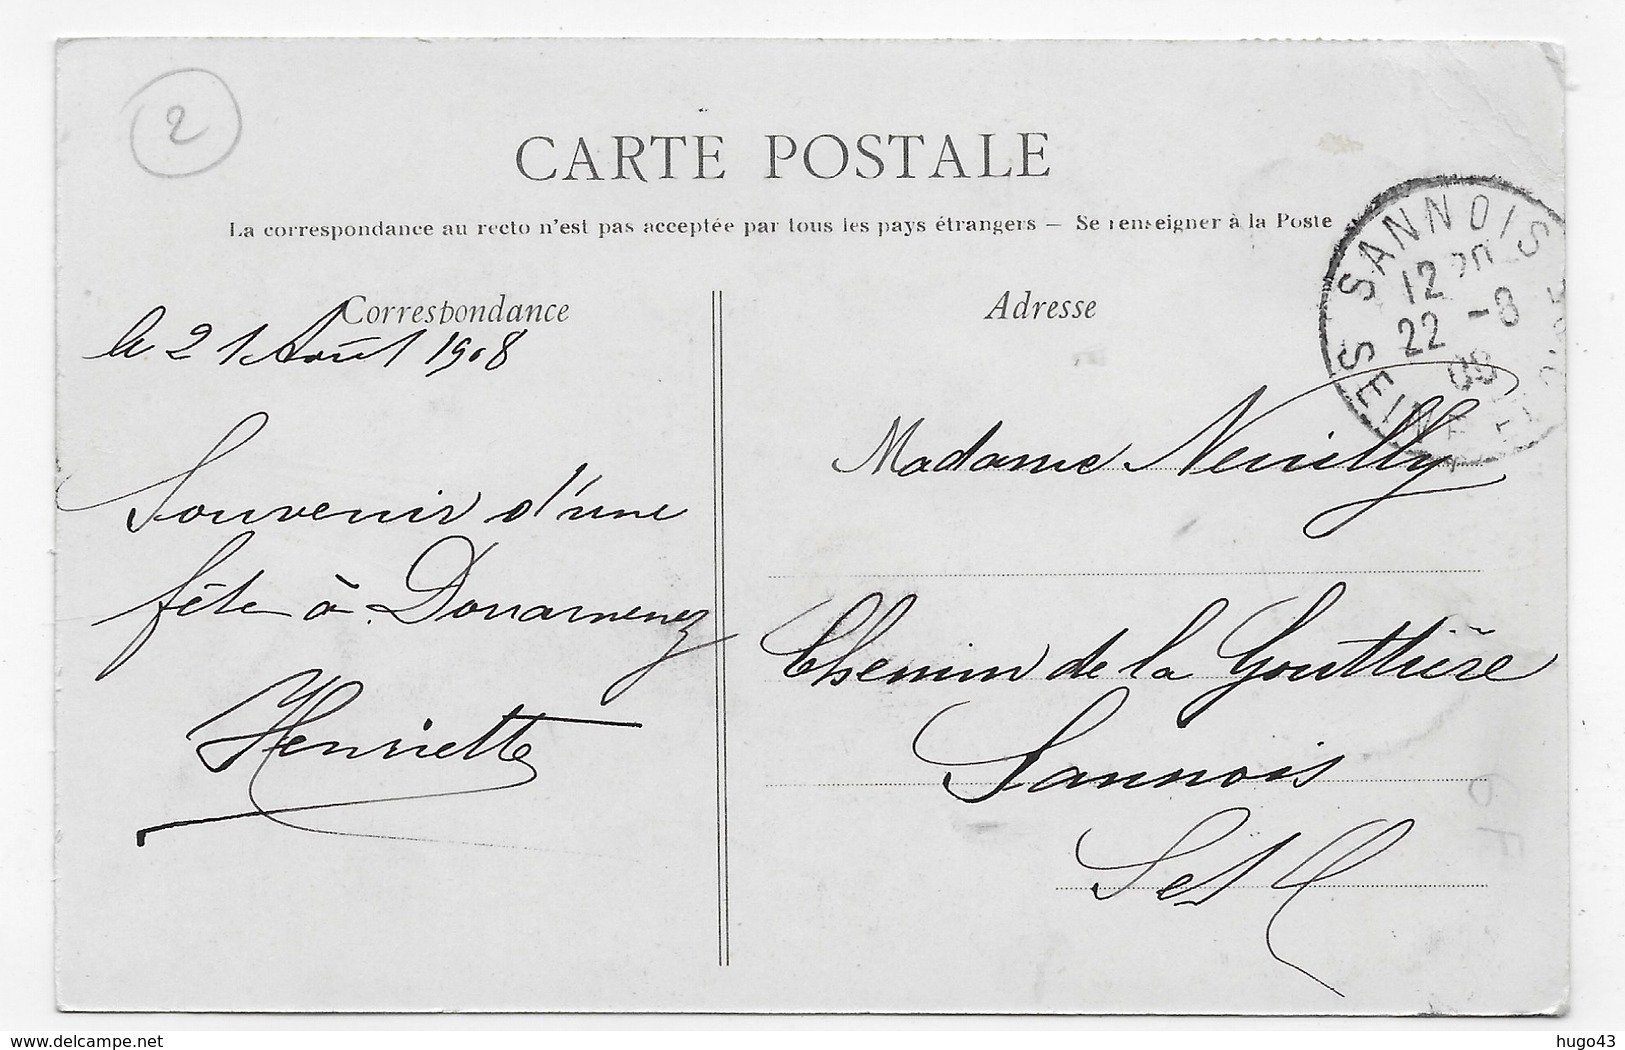 2
CARTE POSTALE
La correspondance au recto n'est pas acceptée par tous les pays étrangers — Se renseigner à la Poste
Correspondance
le 21 Août 1908
Souvenir d'une
fête à Douarnenez
Henriette
Adresse
SANNOIS
12 30
22 -8
08
SEINE ET OISE
Madame Neuilly
Chemin de la Gouttière
Sannois
S et O
delcampe.net
hugo43